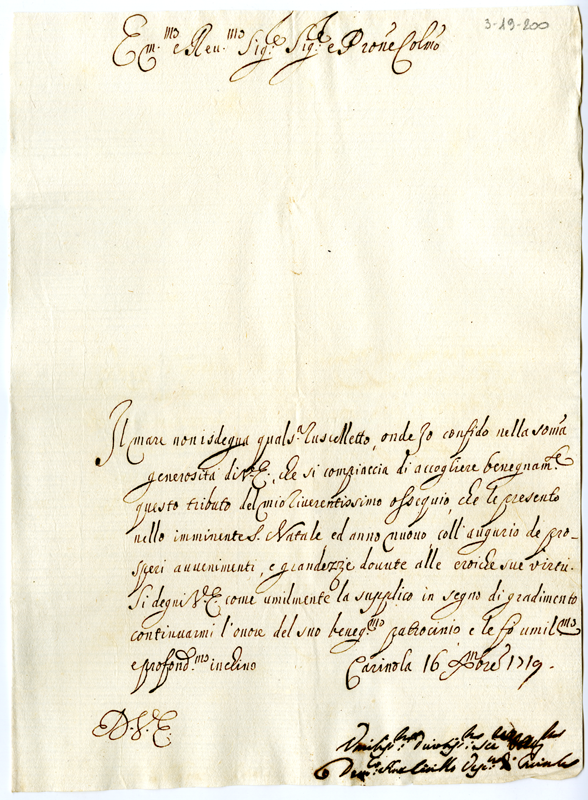 3-19-200
Em.mo e Reu.mo Sig.e Sig.e e Prone Colmo
Il mare non isdegna quals.a Ruscelletto, onde Io confido nella soma
generosità di V.E., che si compiaccia di accogliere benegnam.te
questo tributo del mio riuerentissimo ossequio, che le presento
nello imminente S. Natale ed anno nuouo coll'augurio de pro-
speri auuenimenti, e grandezze douute alle eroiche sue virtù.
Si degni V.E. come umilmente la supplico in segno di gradimento
continuarmi l'onore del suo beneg.mo patrocinio e le fo umil.mo
e profond.mo inchino Carinola 16 Xmbre 1719.
D.V.E.